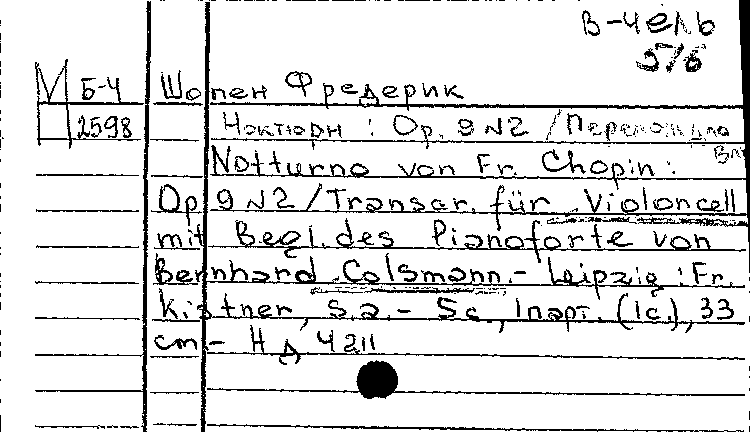 В-чель
5/б
М Б-4 Шопен Фредерик
2598 Ноктюрн : Op. 9 N2 / Перелож для
Влч
Notturno von Fr. Chopin :
Op 9 N2 / Transcr. für Violoncell
mit Begl. des Pianoforte von
Bernhard Colsmann. - Leipzig : Fr.
Kistner, s.a. - 5c., 1парт. (1c.), 33
cm. - Н Д 4211